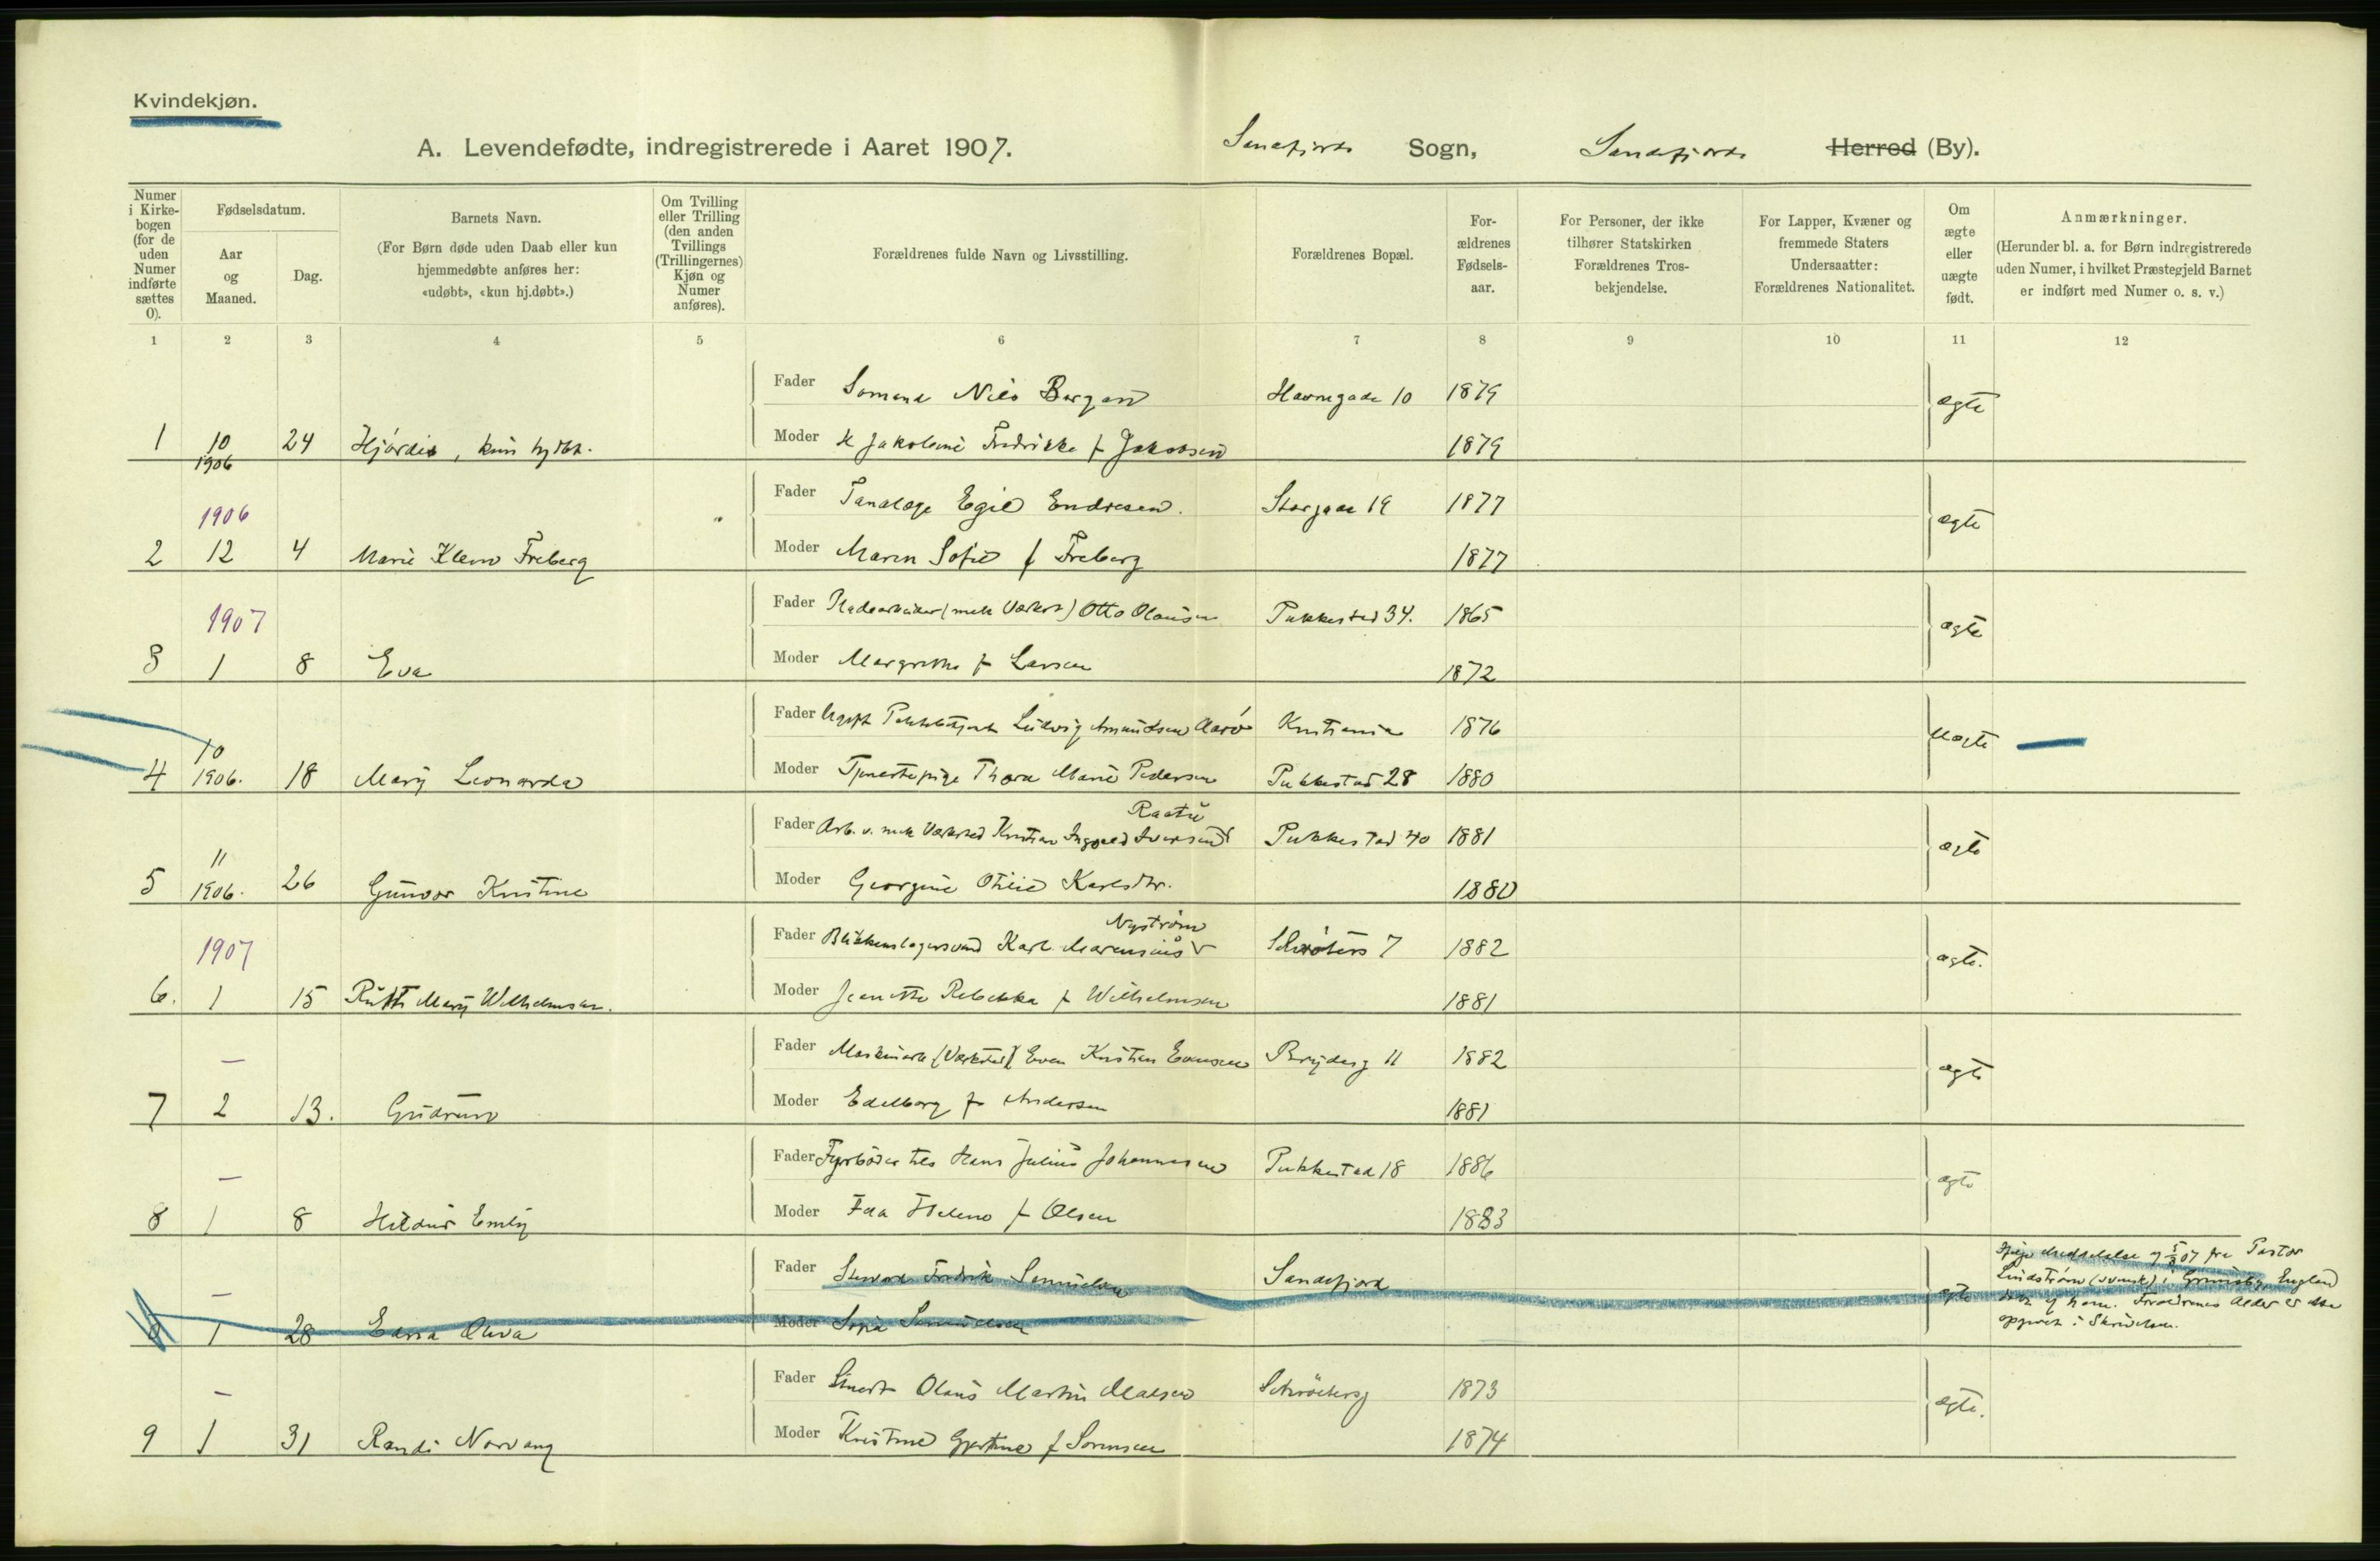 Kvindekjøn.
A. Levendefødte, indregistrerede i Aaret 1907. Sandefjords Sogn, Sandefjords Herred (By).
Numer i Kirke-bogen (for de uden Numer indførte sættes 0).
Fødselsdatum.
Aar og Maaned.
Dag.
Barnets Navn.
(For Børn døde uden Daab eller kun hjemmedøbte anføres her: «udøbt», «kun hj.døbt».)
Om Tvilling eller Trilling (den anden Tvillings (Trillingernes) Kjøn og Numer anføres).
Forældrenes fulde Navn og Livsstilling.
Forældrenes Bopæl.
For-ældrenes Fødsels-aar.
For Personer, der ikke tilhører Statskirken Forældrenes Tros-bekjendelse.
For Lapper, Kvæner og fremmede Staters Undersaatter: Forældrenes Nationalitet.
Om ægte eller uægte født.
Anmærkninger.
(Herunder bl. a. for Børn indregistrerede uden Numer, i hvilket Præstegjeld Barnet er indført med Numer o. s. v.)
1 2 3 4 5 6 7 8 9 10 11 12
Fader Sømand Nils Bergan Havnegade 10 1879 ægte
1 10 1906 24 Hjördis, kun hjdbt. Moder Jakobine Fredrikke f Jakobsen 1879
Fader Tandlæge Egil Endresen. Storgade 19 1877 ægte
1906
2 12 4 Marie Klem Freberg Moder Maren Sofie f Freberg 1877
Fader Pladearbeider (mek Værkst) Otto Olausen Pukkestad 34. 1865 ægte
1907
3 1 8 Eva Moder Margrethe f Larsen 1872
Fader Ludvig Amundsen Aarö Kristiania 1876 uægte
4 10 1906. 18 Mary Leonarda Moder Tjenestepige Thora Marie Pedersen Pukkestad 28 1880
Raastu
Fader Arb. v. mek Værksted Kristian Ingvald Iversen Pukkestad 40 1881 ægte
5 11 1906. 26 Gunvor Kristine Moder Georgine Otilie Karlsdtr. 1880
Nyström
Fader Blikkenslagersvend Karl Marensius Schrøters 7 1882 ægte.
1907
6. 1 15 Ruth Mary Wilhelmsen. Moder Jeanette Rebekka f Wilhelmsen 1881
Fader Maskinarb (Værksted) Even Kristian Evensen Brydesg 11 1882 ægte
—
7 2 13. Gudrun Moder Edelborg f Andersen 1881
Fader Fyrbøder Hans Julius Johannesen Pukkestad 18 1886 ægte
—
8 1 8 Hildur Emily Moder Helene f Olsen 1883
Fader Steward Fredrik Samuelsen Sandefjord ægte
—
1 28 Edna Oliva Moder Sofia Samuelsen
Meddelelse af 5/3 07 fra Pastor
Lindström (svensk) i Grimsby, England
døbt af ham. Forældrenes Alder er ikke
opgivet i Skrivelsen.
Fader Olaus Martin Madsen Schrøtersg 1873 ægte.
—
9 1 31 Randi Norvang Moder Kristine Gjertine f Sørensen 1874